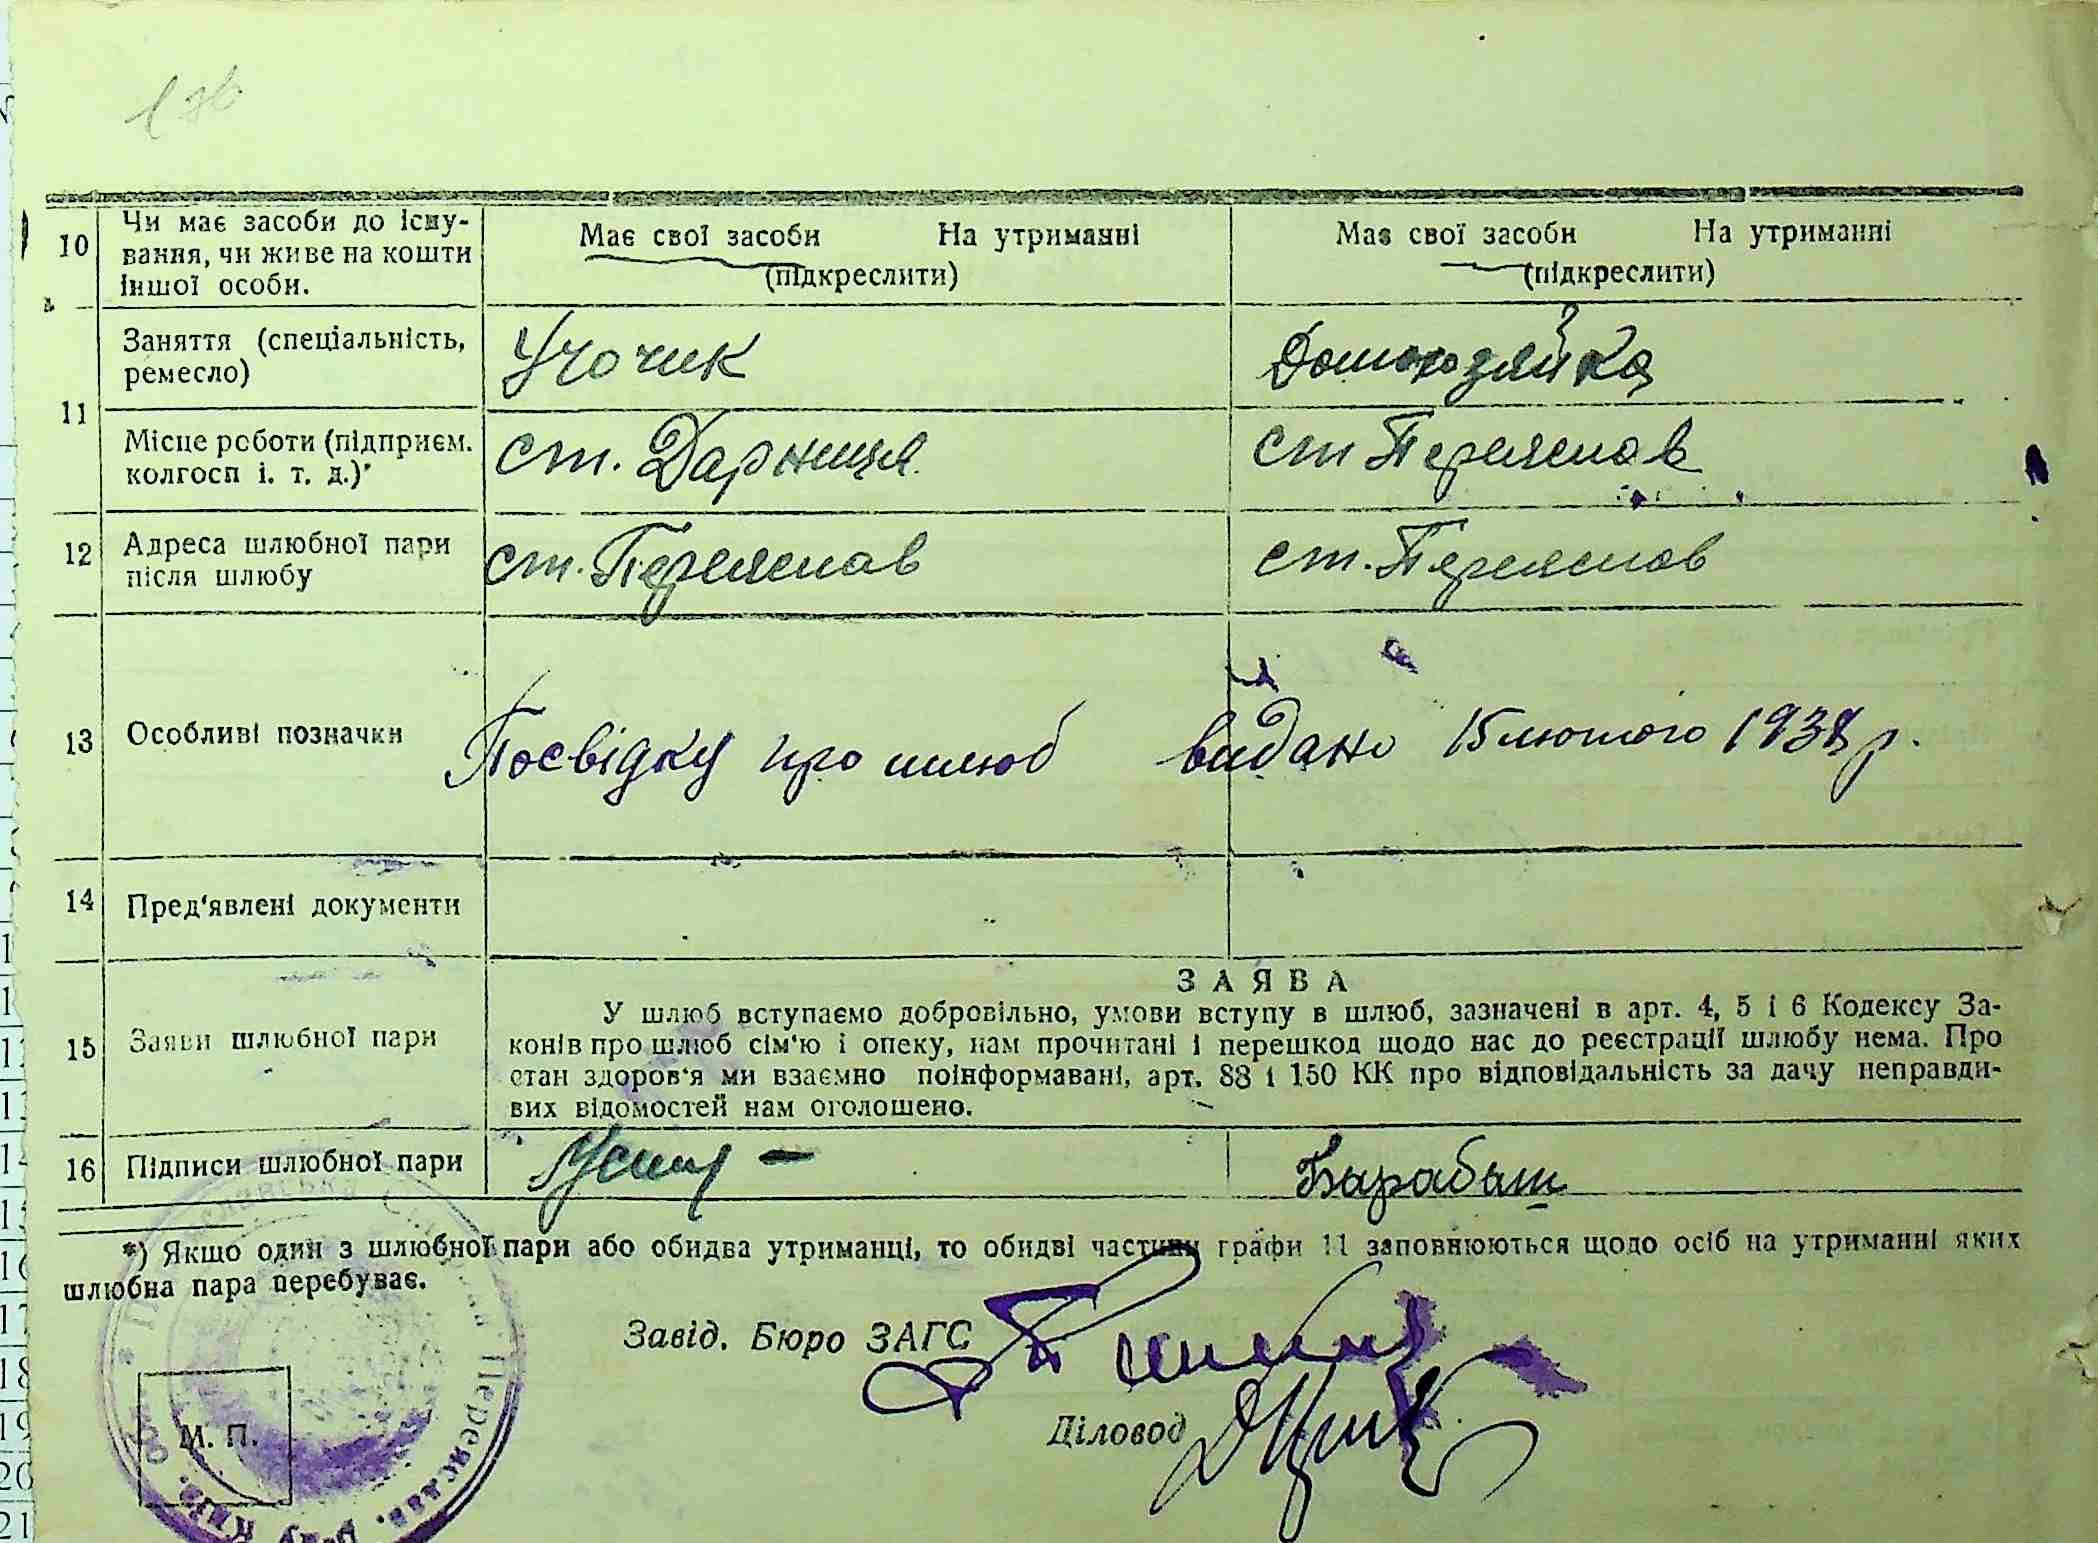 10
Чи має засоби до існу-
вання, чи живе на кошти
іншої особи.
Має свої засоби На утриманні
(підкреслити)
Має свої засоби На утриманні
(підкреслити)
11
Заняття (спеціальність,
ремесло)
Учочик
Домохозяйка
Місце роботи (підприєм.
колгосп і. т. д.)*
ст. Дарниця
ст Переяслав
12
Адреса шлюбної пари
після шлюбу
ст. Переяслав
ст. Переяслав
13
Особливі позначки
Посвідку про шлюб видано 15 лютого 1938 р.
14
Пред'явлені документи
15
Заяви шлюбної пари
ЗАЯВА
У шлюб вступаємо добровільно, умови вступу в шлюб, зазначені в арт. 4, 5 і 6 Кодексу За-
конів про шлюб сім'ю і опеку, нам прочитані і перешкод щодо нас до реєстрації шлюбу нема. Про
стан здоров'я ми взаємно поінформавані, арт. 88 і 150 КК про відповідальність за дачу неправди-
вих відомостей нам оголошено.
16
Підписи шлюбної пари
Барабаш
*) Якщо один з шлюбної пари або обидва утриманці, то обидві частини графи 11 заповнюються щодо осіб на утриманні яких
шлюбна пара перебуває.
Завід. Бюро ЗАГС
Діловод
М. П.
Переяслав.